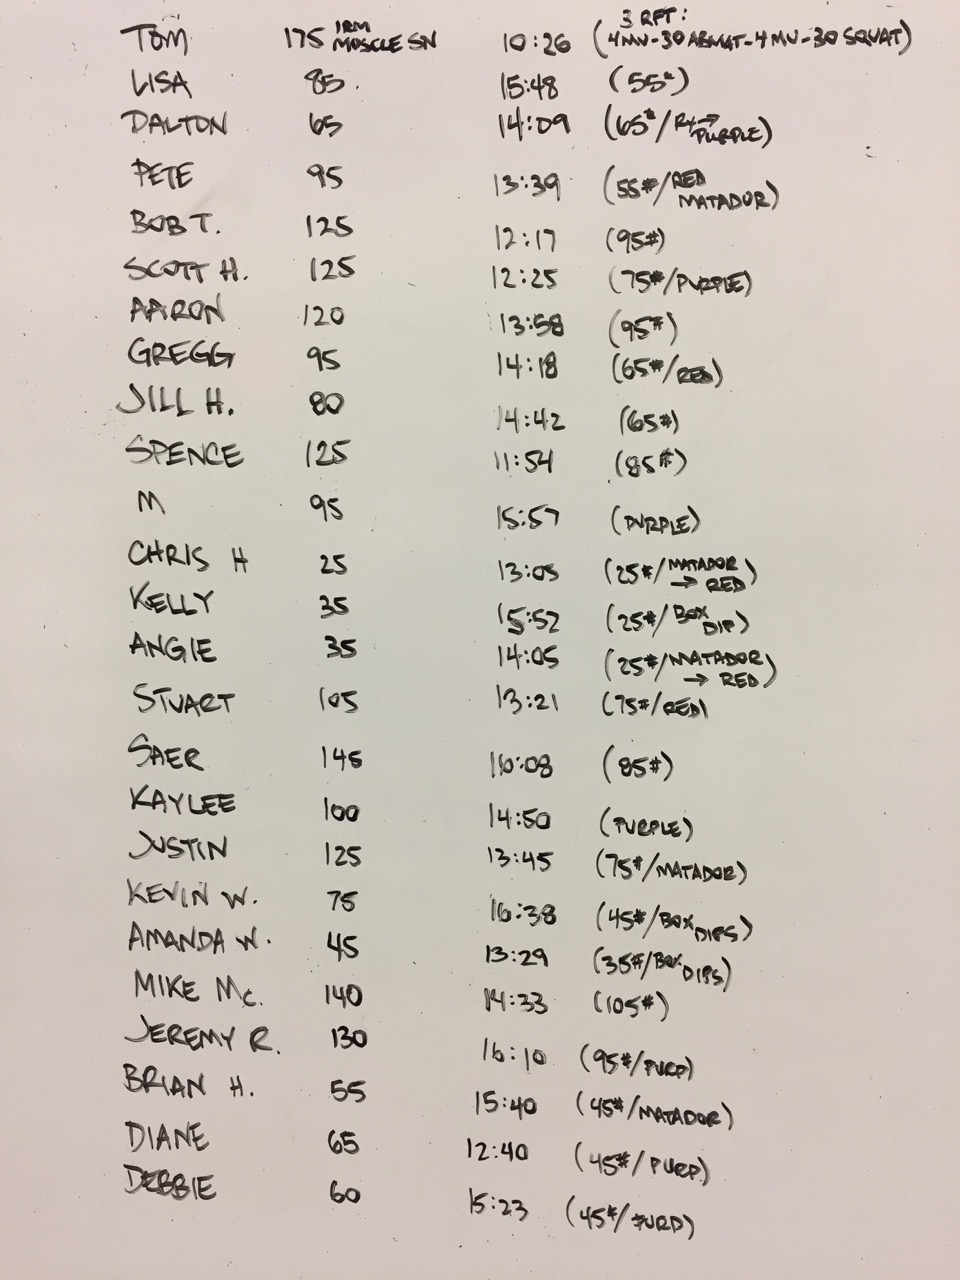 TOM 175 1RM MUSCLE SN 10:26 (3 RFT: 4 MU-30 ABMAT-4 MU-30 SQUAT)
LISA 85. 15:48 (55#)
DALTON 65 14:09 (65#/RX→PURPLE)
PETE 95 13:39 (55#/RED MATADOR)
BOB T. 125 12:17 (95#)
SCOTT H. 125 12:25 (75#/PURPLE)
AARON 120 13:58 (95#)
GREGG 95 14:18 (65#/RED)
JILL H. 80 14:42 (65#)
SPENCE 125 11:54 (85#)
M 95 15:57 (PURPLE)
CHRIS H 25 13:05 (25#/MATADOR → RED)
KELLY 35 15:52 (25#/BOX DIP)
ANGIE 35 14:05 (25#/MATADOR → RED)
STUART 105 13:21 (75#/RED)
SAER 145 16:08 (85#)
KAYLEE 100 14:50 (PURPLE)
JUSTIN 125 13:45 (75#/MATADOR)
KEVIN W. 75 16:38 (45#/BOX DIPS)
AMANDA W. 45 13:29 (35#/BOX DIPS)
MIKE Mc. 140 14:33 (105#)
JEREMY R. 130 16:10 (95#/PURP)
BRIAN H. 55 15:40 (45#/MATADOR)
DIANE 65 12:40 (45#/PURP)
DEBBIE 60 15:23 (45#/PURP)